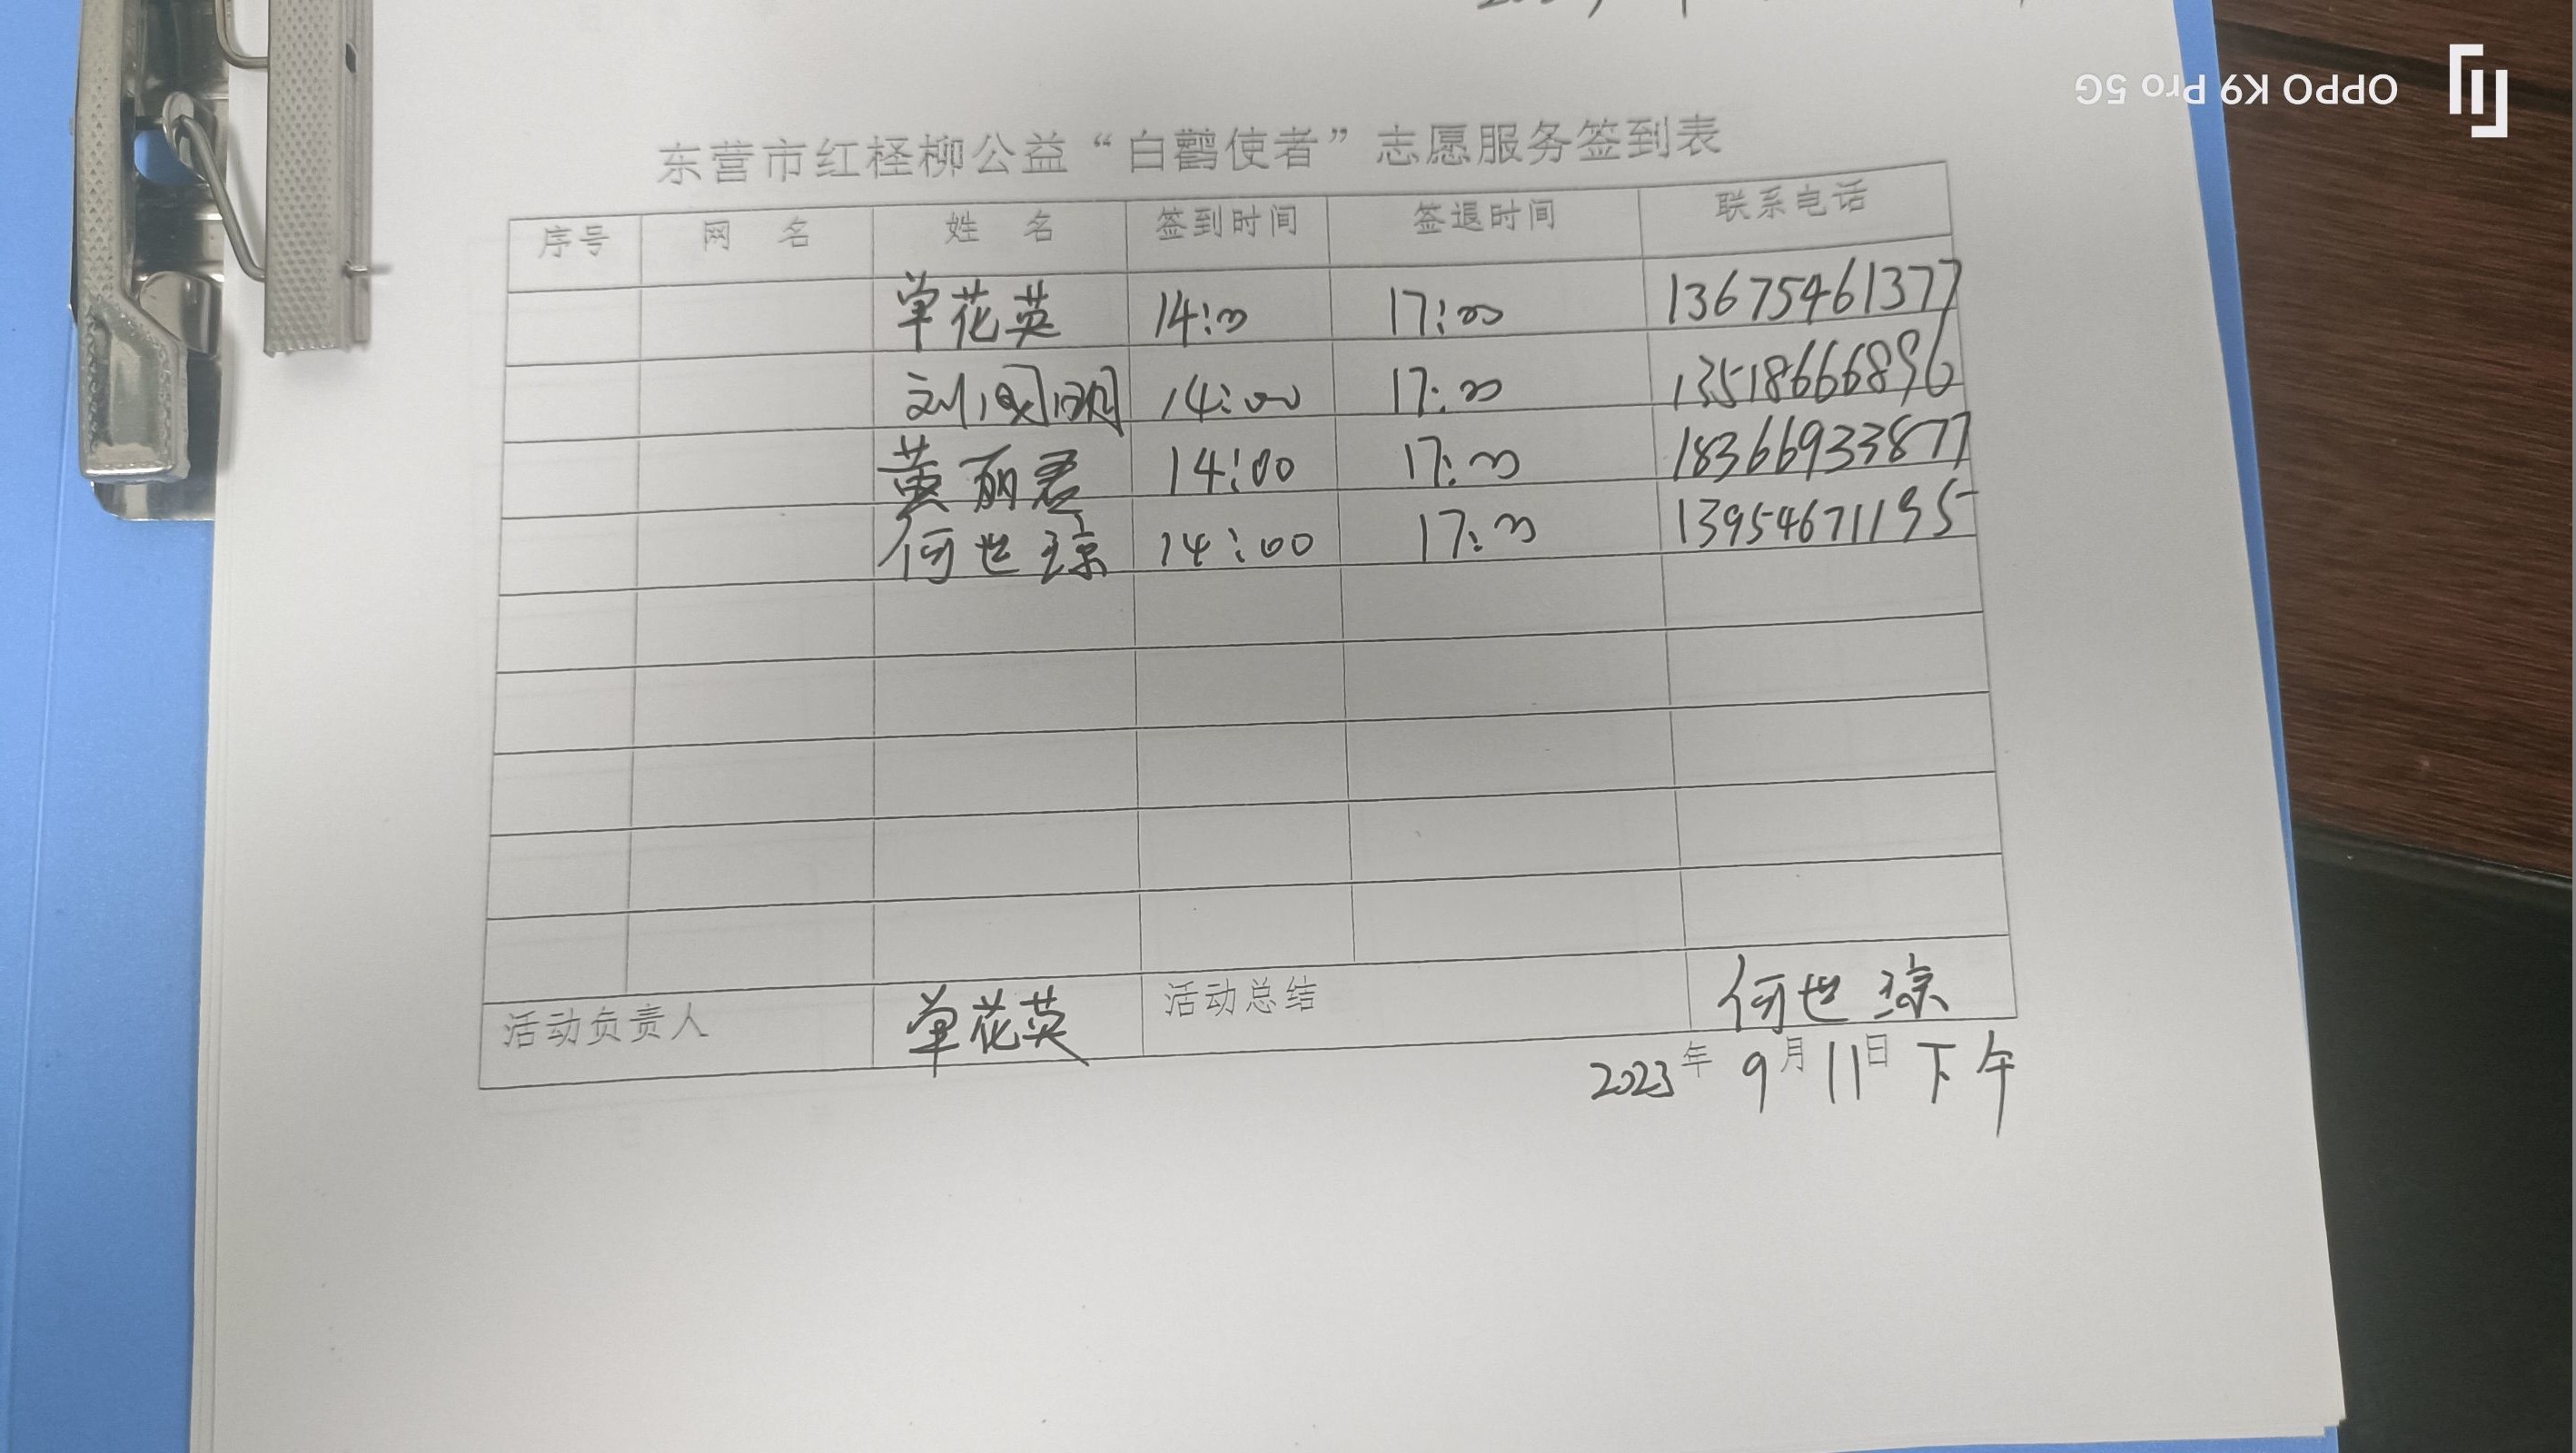 OPPO K9 Pro 5G
东营市红柽柳公益“白鹳使者”志愿服务签到表
序号 网 名 姓 名 签到时间 签退时间 联系电话
单花英 14:00 17:00 13675461377
14:00 17:00 13518666896
黄丽君 14:00 17:00 18366933877
何世琼 14:00 17:00 13954671195
活动负责人 单花英 活动总结 何世琼
2023年9月11日下午